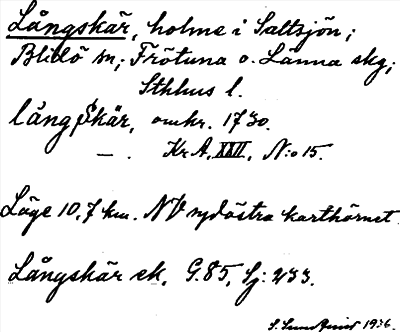 Långskär, holme i Saltsjön;
Blidö sn; Frötuna o. Länna skg;
Sthlms l.
långskär, omkr. 1730.
— . Kr A, XXII, N:o 15.
Läge 10,7 km. NV sydöstra karthörnet.
Långskär ek. G. 85, Sj: 233.
S. Sundquist 1936.